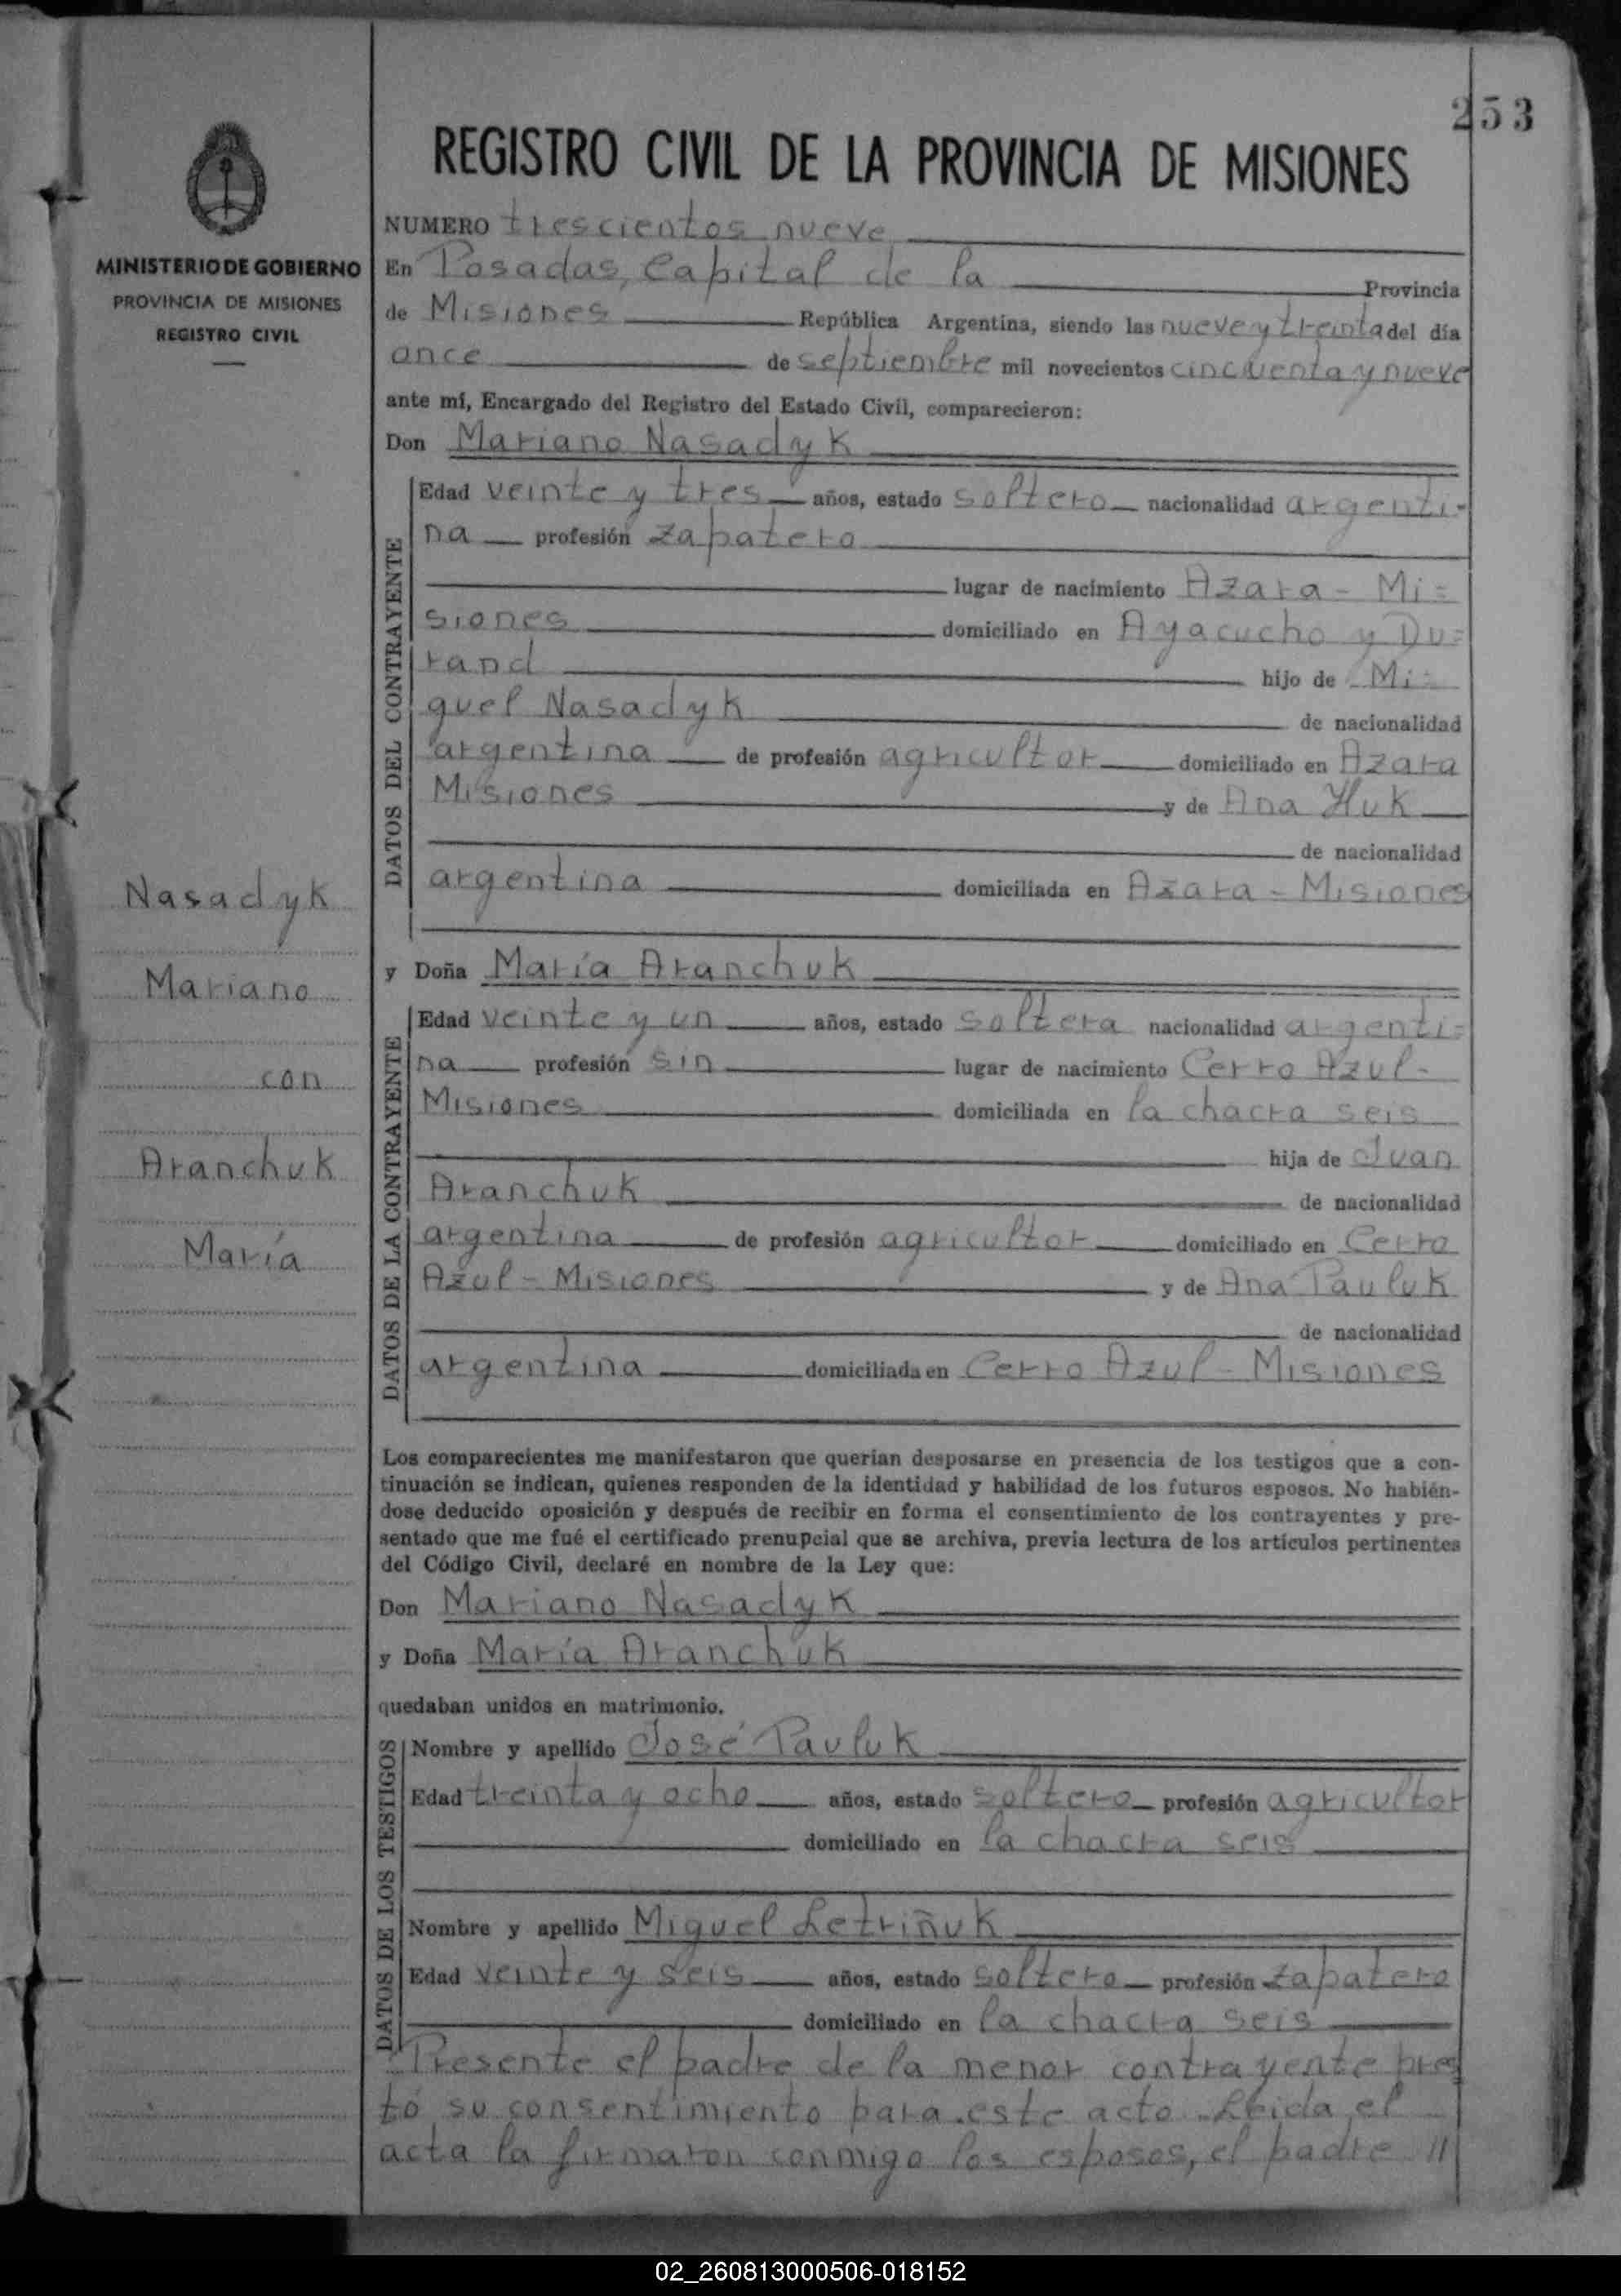 253
REGISTRO CIVIL DE LA PROVINCIA DE MISIONES
MINISTERIO DE GOBIERNO
PROVINCIA DE MISIONES
REGISTRO CIVIL
Nasadyk
Mariano
con
Aranchuk
María
NUMERO trescientos nueve
En Posadas, Capital de la Provincia
de Misiones República Argentina, siendo las nueve y treinta del día
once de septiembre mil novecientos cincuenta y nueve
ante mí, Encargado del Registro del Estado Civil, comparecieron:
Don Mariano Nasadyk
DATOS DEL CONTRAYENTE
Edad veinte y tres años, estado soltero nacionalidad argenti-
na profesión zapatero
lugar de nacimiento Azara - Mi=
siones domiciliado en Ayacucho y Du=
rand hijo de Mi=
guel Nasadyk de nacionalidad
argentina de profesión agricultor domiciliado en Azara
Misiones y de Ana Huk
de nacionalidad
argentina domiciliada en Azara - Misiones
y Doña María Aranchuk
DATOS DE LA CONTRAYENTE
Edad veinte y un años, estado soltera nacionalidad argenti=
na profesión sin lugar de nacimiento Cerro Azul -
Misiones domiciliada en la chacra seis
hija de Juan
Aranchuk de nacionalidad
argentina de profesión agricultor domiciliado en Cerro
Azul - Misiones y de Ana Pauluk
de nacionalidad
argentina domiciliada en Cerro Azul - Misiones
Los comparecientes me manifestaron que querían desposarse en presencia de los testigos que a con-
tinuación se indican, quienes responden de la identidad y habilidad de los futuros esposos. No habién-
dose deducido oposición y después de recibir en forma el consentimiento de los contrayentes y pre-
sentado que me fué el certificado prenupcial que se archiva, previa lectura de los artículos pertinentes
del Código Civil, declaré en nombre de la Ley que:
Don Mariano Nasadyk
y Doña María Aranchuk
quedaban unidos en matrimonio.
DATOS DE LOS TESTIGOS
Nombre y apellido José Pauluk
Edad treinta y ocho años, estado soltero profesión agricultor
domiciliado en la chacra seis
Nombre y apellido Miguel Letriñuk
Edad veinte y seis años, estado soltero profesión zapatero
domiciliado en la chacra seis
Presente el padre de la menor contrayente pres
tó su consentimiento para este acto. Leida el
acta la firmaron conmigo los esposos, el padre //
02_260813000506-018152